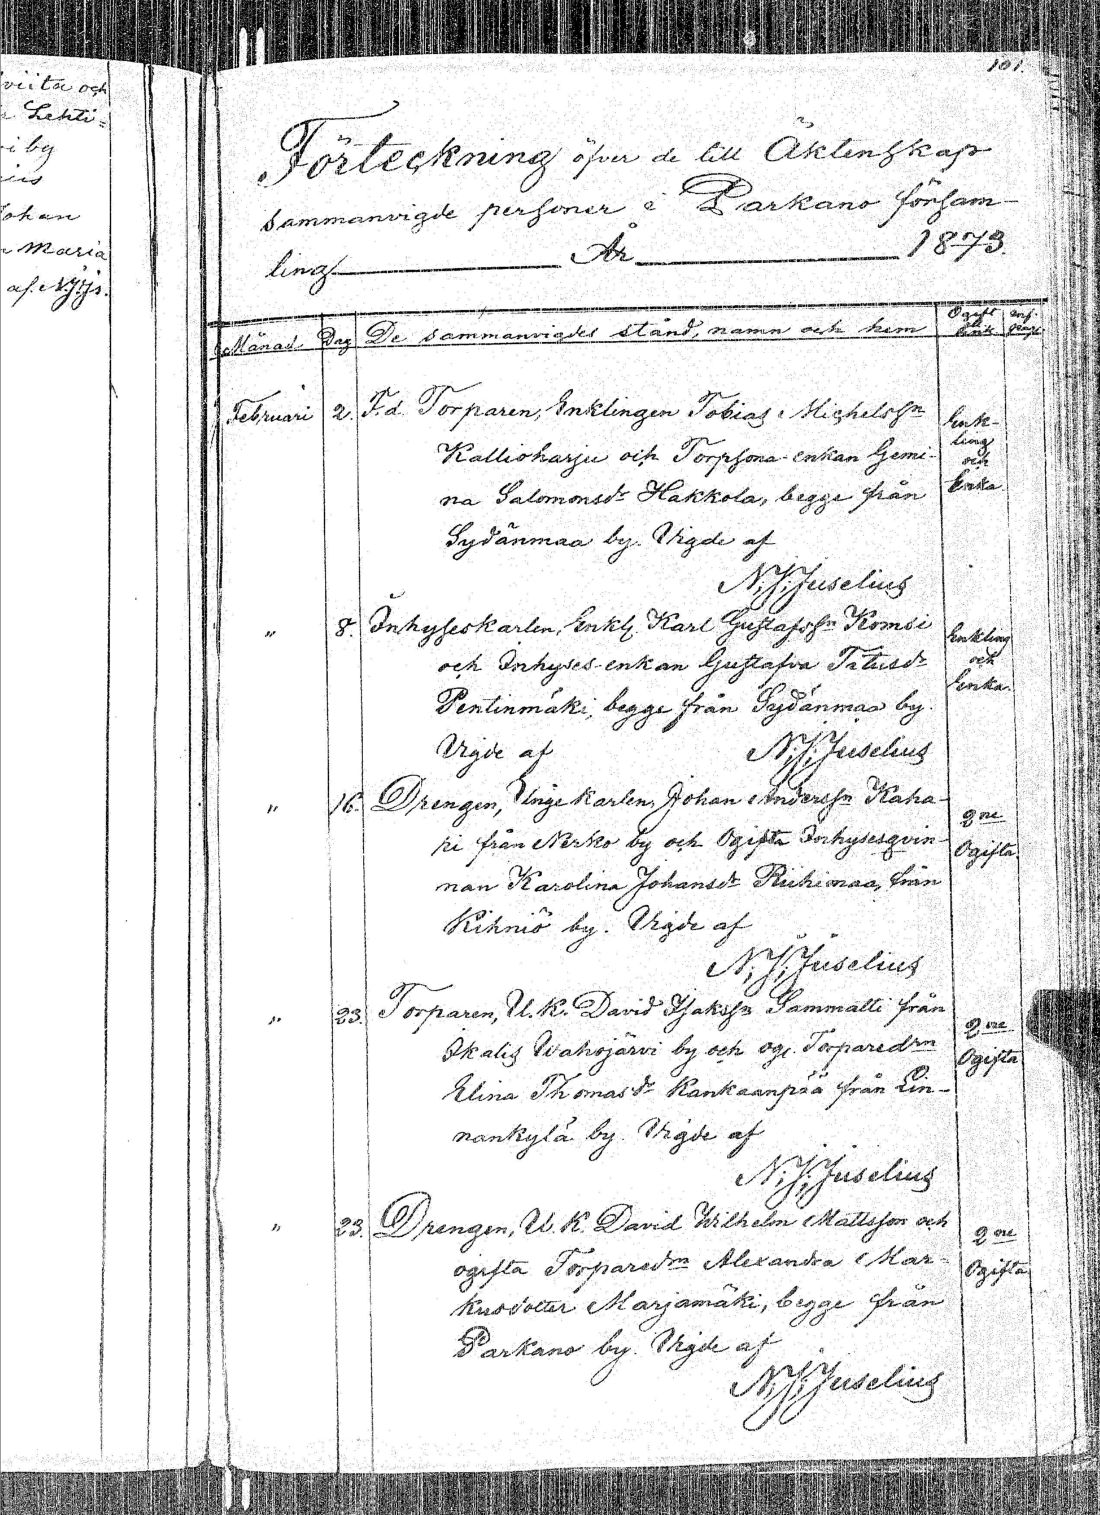 viita och
Lehti=
i by
Johan
Maria
af N.J.Js.
101.
Förteckning öfver de till Äktenskap
sammanvigde personer i Parkano församling
ling År 1873.
Månad Dag De sammanvigdes stånd, namn och hem Ogift
Februari 2. F.d. Torparen, Enklingen Tobias Michelssn
Kallioharju och Torpsona-enkan Gemi-
na Salomonsdr Hakkola, begge från
Sydänmaa by. Vigde af
N.J.Juselius
Enk-
ling
och
Enka.
" 8. Inhyseskarlen, Enkl. Karl Gustafssn Komsi
och Inhyses-enkan Gustafva Tatusdr
Pentinmäki, begge från Sydänmaa by.
Vigde af N.J.Juselius
Enkling
och
Enka.
" 16. Drengen, Unge karlen, Johan Anderssn Kaha-
pi från Nerko by och Ogifta Inhysesqvin-
nan Karolina Johansdr Riihimaa, från
Kihniö by. Vigde af
N.J.Juselius
2ne
Ogifta.
" 23. Torparen, U.K. David Isakssn Sammatti från
Ikalis Wahojärvi by och og. Torparedrn
Elina Thomasdr Kankaanpää från Lin-
nankylä by. Vigde af
N.J.Juselius
2ne
Ogifta
" 23. Drengen, U.K. David Wilhelm Mattsson och
ogifta Torparedrn Alexandra Mar-
kusdotter Marjamäki, begge från
Parkano by. Vigde af
N.J.Juselius
2ne
Ogifta